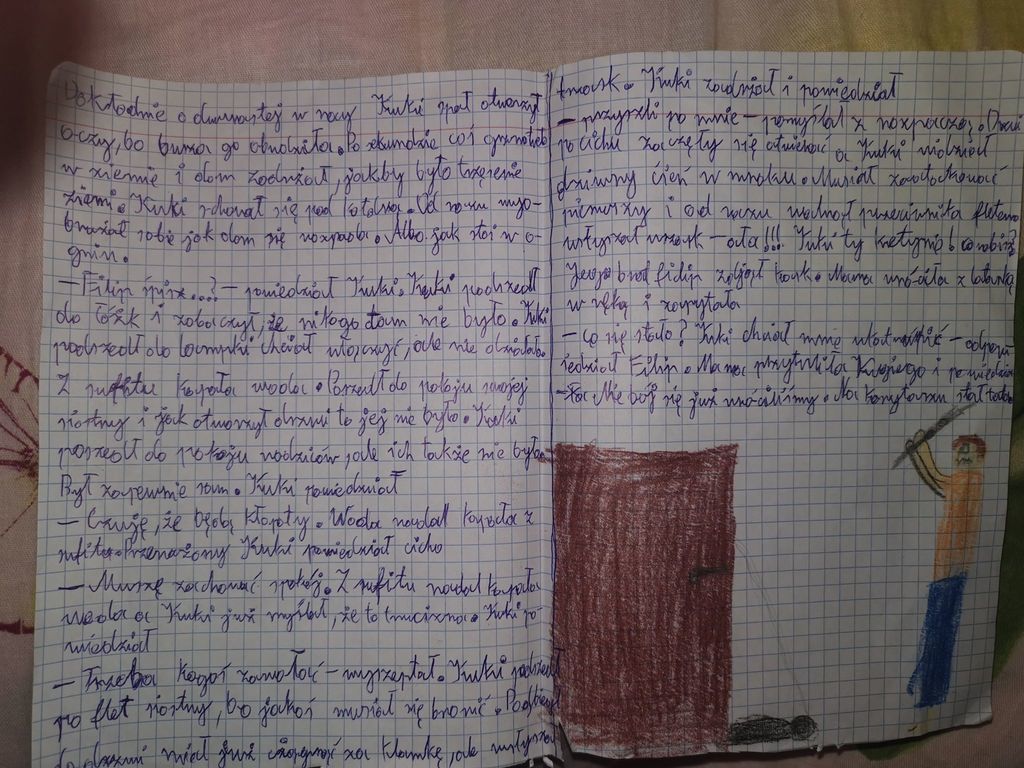 Dokładnie o dwunastej w nocy Kuki spał otworzył
oczy, bo burza go obudziła. Po sekundzie coś grzmotneło
w ziemie i dom zadrżał, jakby było trzęsienie
ziemi. Kuki schował się pod kołdrą. Od razu wyo-
braził sobie jak dom się rozpada. Albo jak stoi w o-
gniu.
— Filip śpisz...? — powiedział Kuki. Kuki podszedł
do łóżk i zobaczył, że nikogo tam nie było. Kuki
podszedł do lampki chciał włączyć, ale nie działała.
Z sufitu kapała woda. Poszedł do pokoju swojej
siostry i jak otworzył drzwi to jej nie było. Kuki
poszedł do pokoju rodziców, ale ich także nie było.
Był zapewnie sam. Kuki powiedział
— Czuję, że będą kłopoty. Woda nadal kapała z
sufitu. Przerażony Kuki powiedział cicho
— Muszę zachować spokój. Z sufitu nadal kapała
woda a Kuki już myślał, że to trucizna. Kuki po
wiedział
— Trzeba kogoś zawołać — wyszeptał. Kuki podszedł
po flet siostry, bo jakoś musiał się bronić. Podbiegł
do drzwi miał już ciągnąć za klamkę, ale usłyszał
trzask. Kuki zadrżał i powiedział
— przyszli po mnie — pomyślał z rozpaczą. Drzwi
po cichu zaczęły się otwierać a Kuki widział
dziwny cień w mroku. Musiał zaatakować
pierwszy i od razu walnął przeciwnika fletem
usłyszał wrzask — ała!!! Kuki ty kretynie co robisz?
Jego brat Filip zapalił Mama wróciła z latarką
w ręką i zapytała
— co się stało? Kuki chciał mnie — odpowi
iedział Filip. Mama przytuliła Kukiego i powiedziała
— Nie bój się już wróciliśmy. Na korytarzu stał tata